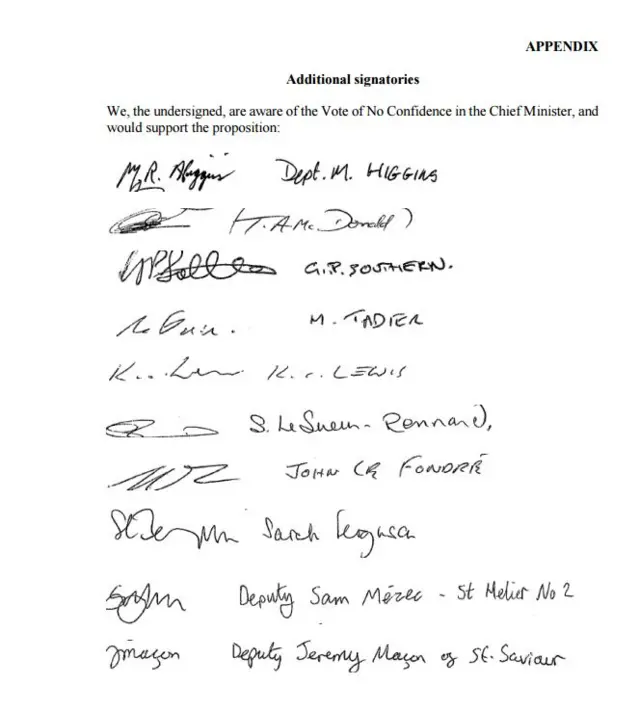 APPENDIX
Additional signatories
We, the undersigned, are aware of the Vote of No Confidence in the Chief Minister, and
would support the proposition:
Dept. M. HIGGINS
(T.A Mc. Donald)
G.P. SOUTHERN.
M. TADIER
K. C. LEWIS
S. Le Sueur - Rennard,
JOHN LE FONDRÉ
Sarah Ferguson
Deputy Sam Mézec - St Helier No 2
JMaçon Deputy Jeremy Maçon of St. Saviour